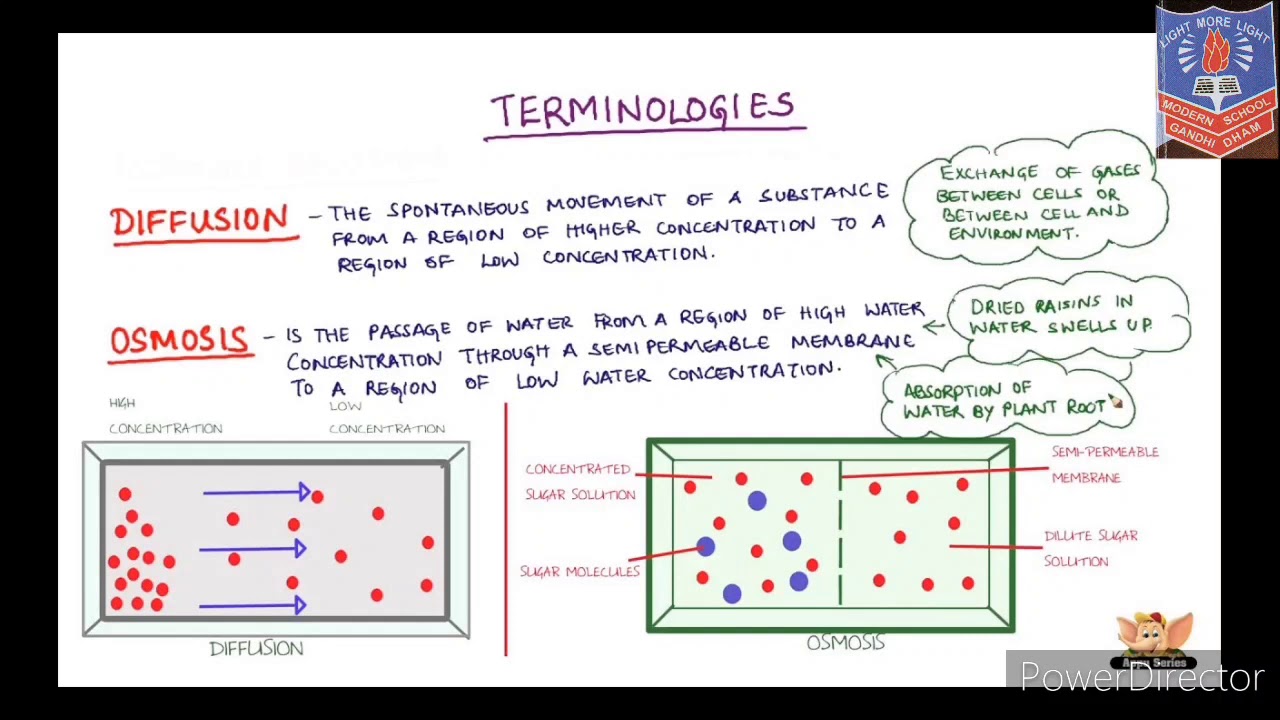 LIGHT MORE LIGHT
MODERN SCHOOL
GANDHI DHAM
TERMINOLOGIES
DIFFUSION - THE SPONTANEOUS MOVEMENT OF A SUBSTANCE
FROM A REGION OF HIGHER CONCENTRATION TO A
REGION OF LOW CONCENTRATION.
EXCHANGE OF GASES
BETWEEN CELLS OR
BETWEEN CELL AND
ENVIRONMENT.
OSMOSIS - IS THE PASSAGE OF WATER FROM A REGION OF HIGH WATER
CONCENTRATION THROUGH A SEMIPERMEABLE MEMBRANE
TO A REGION OF LOW WATER CONCENTRATION.
DRIED RAISINS IN
WATER SWELLS UP.
ABSORPTION OF
WATER BY PLANT ROOT
HIGH
CONCENTRATION
LOW
CONCENTRATION
DIFFUSION
CONCENTRATED
SUGAR SOLUTION
SUGAR MOLECULES
SEMI-PERMEABLE
MEMBRANE
DILUTE SUGAR
SOLUTION
OSMOSIS
Appu Series
PowerDirector